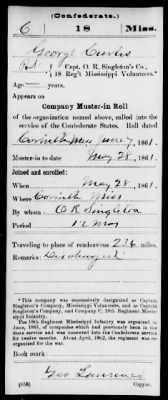 (Confederate.)
6 18 Miss.
George Curtis
Pvt, Capt. O. R. Singleton's Co.,
18 Reg't Mississippi Volunteers.*
Age years.
Appears on
Company Muster-in Roll
of the organization named above, called into the
service of the Confederate States. Roll dated
Corinth Miss June 7, 1861.
Muster-in to date May 28, 1861.
Joined and enrolled:
When May 28, 1861.
Where Corinth Miss
By whom O R Singleton
Period 12 Mos
Traveling to place of rendezvous 226 miles.
Remarks: Discharged
*This company was successively designated as Captain
Singleton's Company, Mississippi Volunteers, and as Captain
Singleton's Company and Company C, 18th Regiment Mississippi
Infantry.
The 18th Regiment Mississippi Infantry was organized in
June, 1861, of companies which had previously been in the
State service and was mustered into the Confederate service
for twelve months. About April, 1862, the regiment was re-
organized for the war.
Book mark:
Geo Laurence
(656) Copyist.